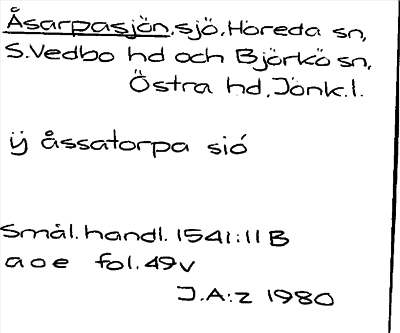 Åsarpasjön, sjö, Höreda sn,
S. Vedbo hd och Björkö sn,
Östra hd, Jönk. l.
ij åssatorpa sió
Smål. handl. 1541:11 B
a o e fol. 49v
J.A:z 1980